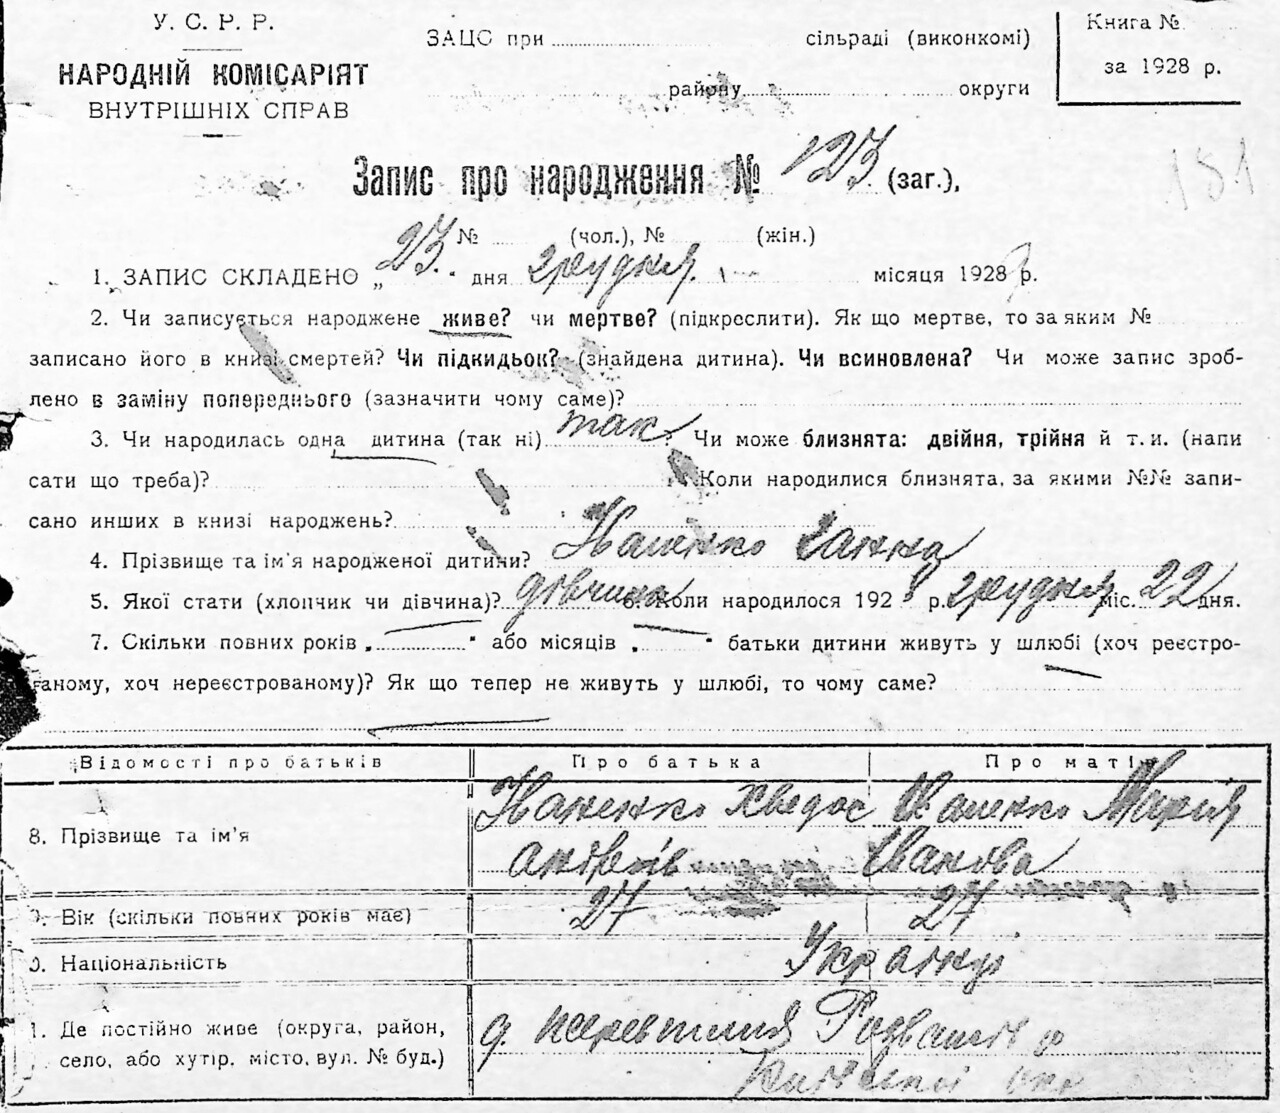 У. С. Р. Р.
НАРОДНІЙ КОМІСАРІЯТ
ВНУТРІШНІХ СПРАВ
ЗАЦС при сільраді (виконкомі)
району округи
Книга №
за 1928 р.
Запис про народження № 123 (заг.),
181
№ (чол.), № (жін.)
1. ЗАПИС СКЛАДЕНО „23" дня грудня місяця 1928 р.
2. Чи записується народжене живе? чи мертве? (підкреслити). Як що мертве, то за яким №
записано його в книзі смертей? Чи підкидьок? (знайдена дитина). Чи всиновлена? Чи може запис зроб-
лено в заміну попереднього (зазначити чому саме)?
3. Чи народилась одна дитина (так ні) так? Чи може близнята: двійня, трійня й т. и. (напи
сати що треба)? Коли народилися близнята, за якими №№ запи-
сано инших в книзі народжень?
4. Прізвище та ім'я народженої дитини? Іваненко Ганна
5. Якої стати (хлопчик чи дівчина)? дівчина 6. Коли народилося 1928 р. грудня міс. 22 дня.
7. Скільки повних років „ " або місяців „ " батьки дитини живуть у шлюбі (хоч реєстро-
ваному, хоч нереєстрованому)? Як що тепер не живуть у шлюбі, то чому саме?
Відомості про батьків Про батька Про матір
8. Прізвище та ім'я Іваненко Хведос Іваненко Марія
Андріїв Іванова
9. Вік (скільки повних років має) 27 27
0. Національність Українці
1. Де постійно живе (округа, район,
село, або хутір, місто, вул. № буд.)